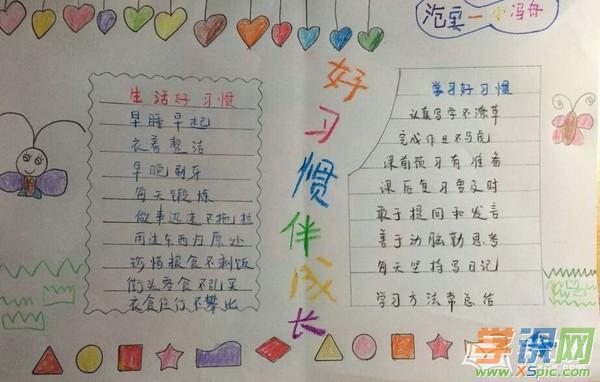 范实一小冯舟
生活好习惯
早睡早起
衣着整洁
早晚刷牙
每天锻炼
做事迅速不拖拉
用过东西归原处
珍惜粮食不剩饭
街头零食不乱买
衣食住行不攀比
好习惯伴成长
学习好习惯
认真写字不潦草
完成作业不马虎
课前预习有准备
课后复习要及时
敢于提问和发言
善于动脑勤思考
每天坚持写日记
学习方法常总结
学课网
www.XSpic.com